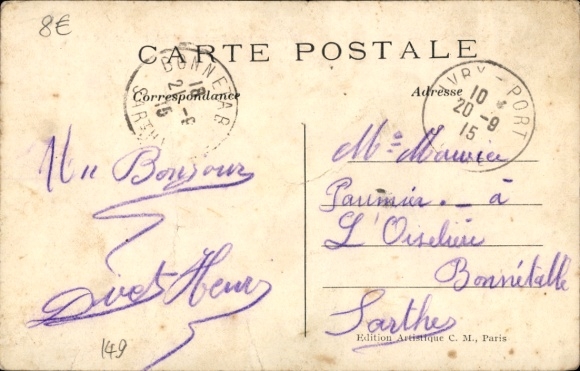 8€
CARTE POSTALE
BONNÉTABLE
SARTHE
18
21 -9
15
Correspondance
Adresse
IVRY-PORT
10
20 -9
15
Bonjour
Mr Maurice
Paumier. - à
L'Oiselière
Bonnétable
Sarthe
149
Edition Artistique C. M., Paris